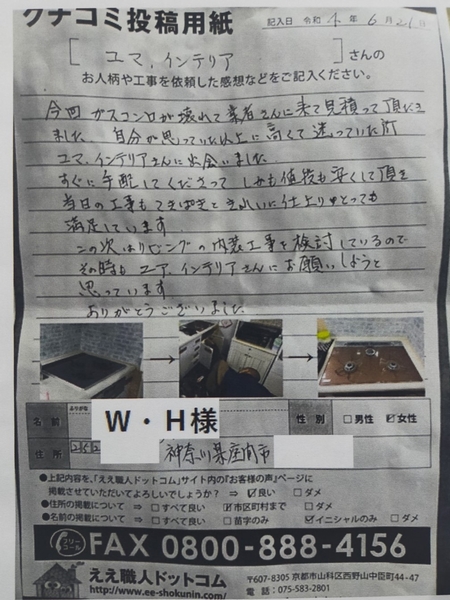 クチコミ投稿用紙
記入日 令和 4 年 6 月 21 日
[ ユマ、インテリア ] さんの
お人柄や工事を依頼した感想などをご記入ください。
今回 ガスコンロが壊れて業者さんに来て見積って頂き
ました。自分が思っていた以上に高くて迷っていた所
ユマ、インテリアさんに出会いました。
すぐに手配してくださって しかも値段も安くして頂き
当日の工事もてきぱきときれいに仕上りとっても
満足しています。
この次はリビングの内装工事を検討しているので
その時も ユア、インテリアさんにお願いしようと
思っています
ありがとうございました。
ふりがな
名前 W・H様 性別 □男性 ☑女性
住所 神奈川県座間市
●上記内容を、「ええ職人ドットコム」サイト内の「お客様の声」ページに
掲載させていただいてよろしいでしょうか? ⇒ ☑良い □ダメ
●住所の掲載について ⇒ □すべて良い ☑市区町村まで □ダメ
●名前の掲載について ⇒ □すべて良い □苗字のみ ☑イニシャルのみ □ダメ
フリーコール FAX 0800-888-4156
ええ職人ドットコム
http://www.ee-shokunin.com/
〒607-8305 京都市山科区西野山中臣町44-47
電話:075-583-2801